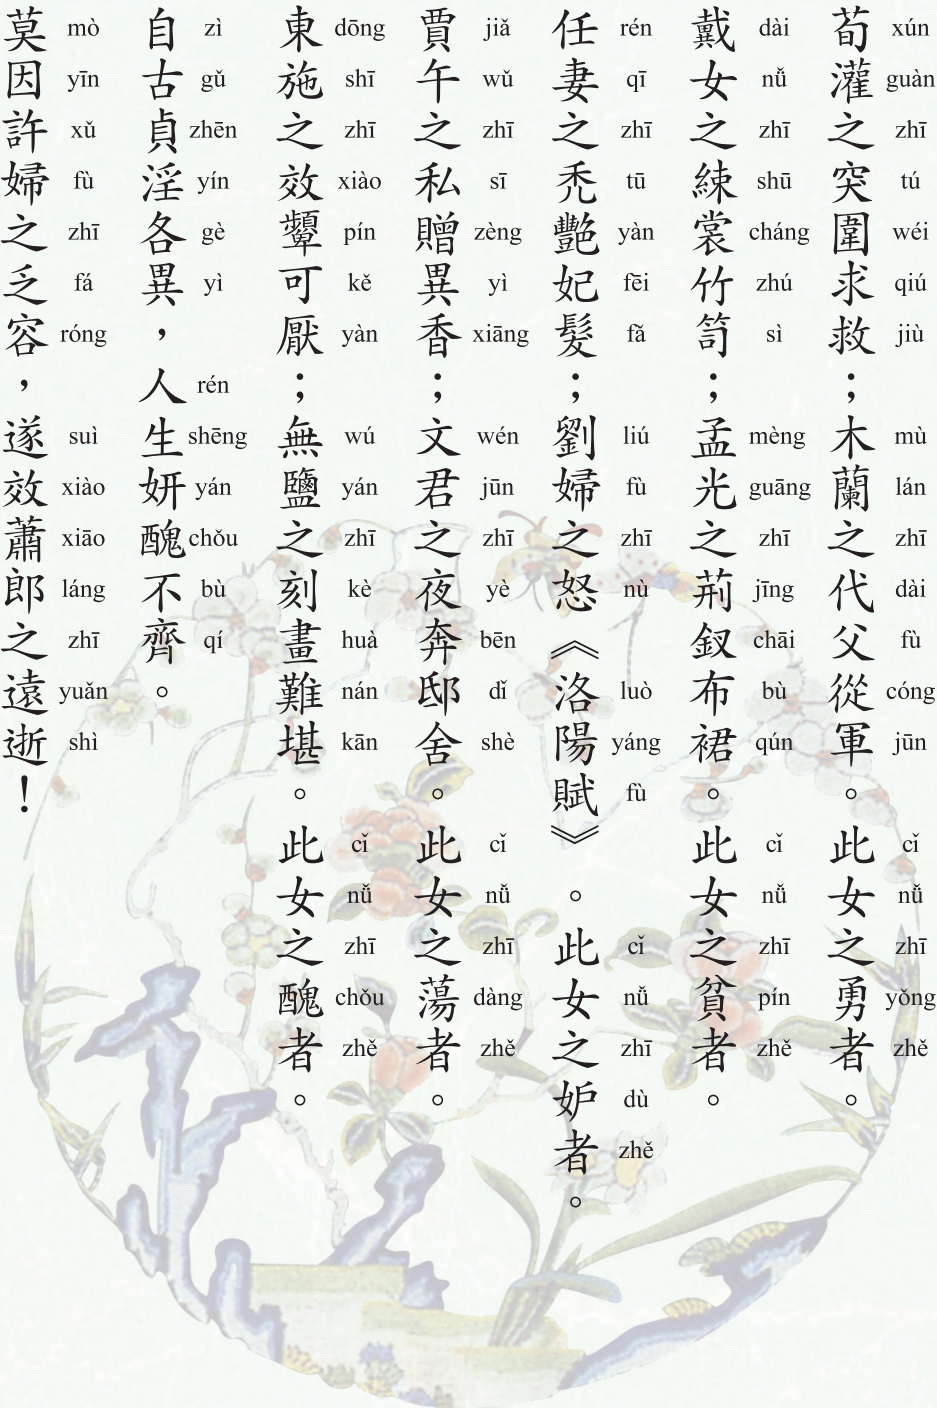 荀灌之突圍求救；木蘭之代父從軍。此女之勇者。
xún guàn zhī tú wéi qiú jiù mù lán zhī dài fù cóng jūn cǐ nǚ zhī yǒng zhě
戴女之練裳竹笥；孟光之荊釵布裙。此女之貧者。
dài nǚ zhī shū cháng zhú sì mèng guāng zhī jīng chāi bù qún cǐ nǚ zhī pín zhě
任妻之禿艷妃髮；劉婦之怒《洛陽賦》。此女之妒者。
rén qī zhī tū yàn fēi fǎ liú fù zhī nù luò yáng fù cǐ nǚ zhī dù zhě
賈午之私贈異香；文君之夜奔邸舍。此女之蕩者。
jiǎ wǔ zhī sī zèng yì xiāng wén jūn zhī yè bēn dǐ shè cǐ nǚ zhī dàng zhě
東施之效顰可厭；無鹽之刻畫難堪。此女之醜者。
dōng shī zhī xiào pín kě yàn wú yán zhī kè huà nán kān cǐ nǚ zhī chǒu zhě
自古貞淫各異，人生妍醜不齊。
zì gǔ zhēn yín gè yì rén shēng yán chǒu bù qí
莫因許婦之乏容，遂效蕭郎之遠逝！
mò yīn xǔ fù zhī fá róng suì xiào xiāo láng zhī yuǎn shì